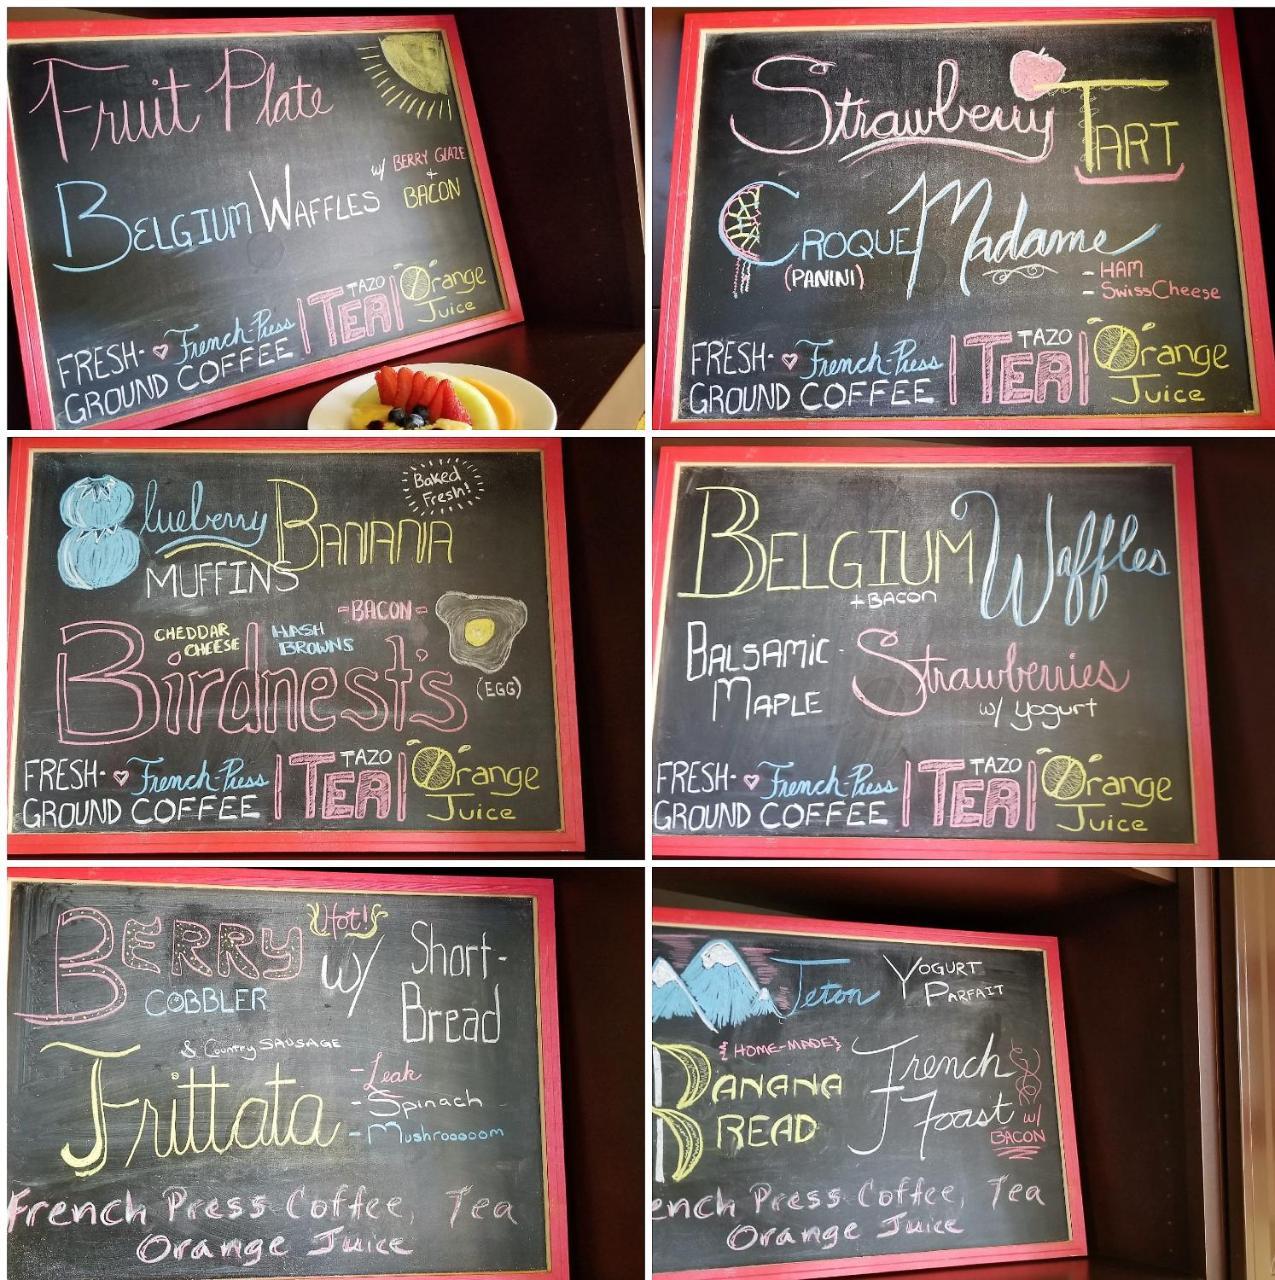 Fruit Plate
BELGIUM WAFFLES w/ BERRY GLAZE
+
BACON
FRESH- French-Press
GROUND COFFEE
TAZO
TEA
Orange
Juice
Strawberry TART
CROQUE Madame
(PANINI)
- HAM
- Swiss Cheese
FRESH- French-Press
GROUND COFFEE
TAZO
TEA
Orange
Juice
Baked
Fresh!
Blueberry BANANA
MUFFINS
-BACON-
CHEDDAR
CHEESE
HASH
BROWNS
Birdnest's
(EGG)
FRESH- French-Press
GROUND COFFEE
TAZO
TEA
Orange
Juice
BELGIUM Waffles
+ BACON
BALSAMIC-
MAPLE
Strawberries
w/ yogurt
FRESH- French-Press
GROUND COFFEE
TAZO
TEA
Orange
Juice
Hot!
BERRY w/ Short-
COBBLER Bread
& Country SAUSAGE
Frittata
- Leak
- Spinach
- Mushrooooom
French Press Coffee, Tea
Orange Juice
Teton YOGURT
PARFAIT
{HOME-MADE}
BANANA
BREAD
French
Toast w/
BACON
ench Press Coffee, Tea
Orange Juice